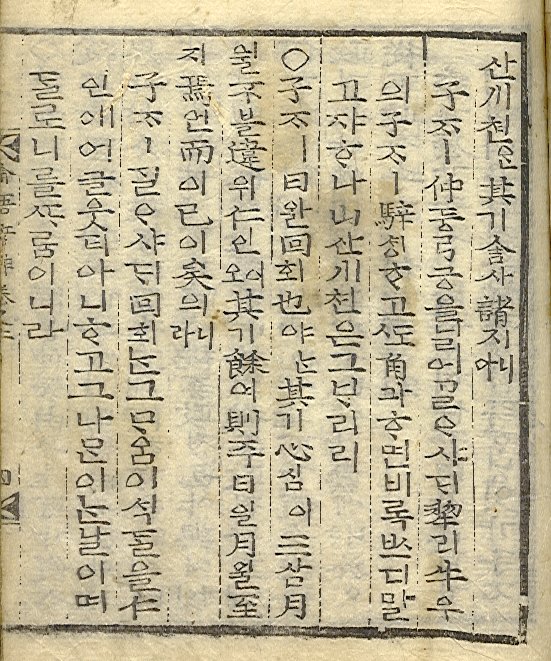 산川쳔은其기舍사諸지아니
子ᄌᆞㅣ仲듕弓궁을닐어ᄀᆞᆯᄋᆞ샤ᄃᆡ犂리牛우
의子ᄌᆞㅣ騂셩ᄒᆞ고ᄯᅩ角과ᄒᆞ면비록ᄡᅳ디말
고쟈ᄒᆞ나山산川쳔은그ᄇᆞ리리
○子ᄌᆞㅣ曰왈回회也야ᄂᆞᆫ其기心심이三삼月
월不블違위仁인이오其기餘여則주日일月월至
지焉언而이已이矣의니라
子ᄌᆞㅣᄀᆞᆯᄋᆞ샤ᄃᆡ回회ᄂᆞᆫ그ᄆᆞᄋᆞᆷ이석ᄃᆞᆯ을仁
인애어글웃디아니ᄒᆞ고그나ᄆᆞᆫ이ᄂᆞᆫ날이며
ᄃᆞᆯ로니를ᄯᆞᄅᆞᆷ이니라